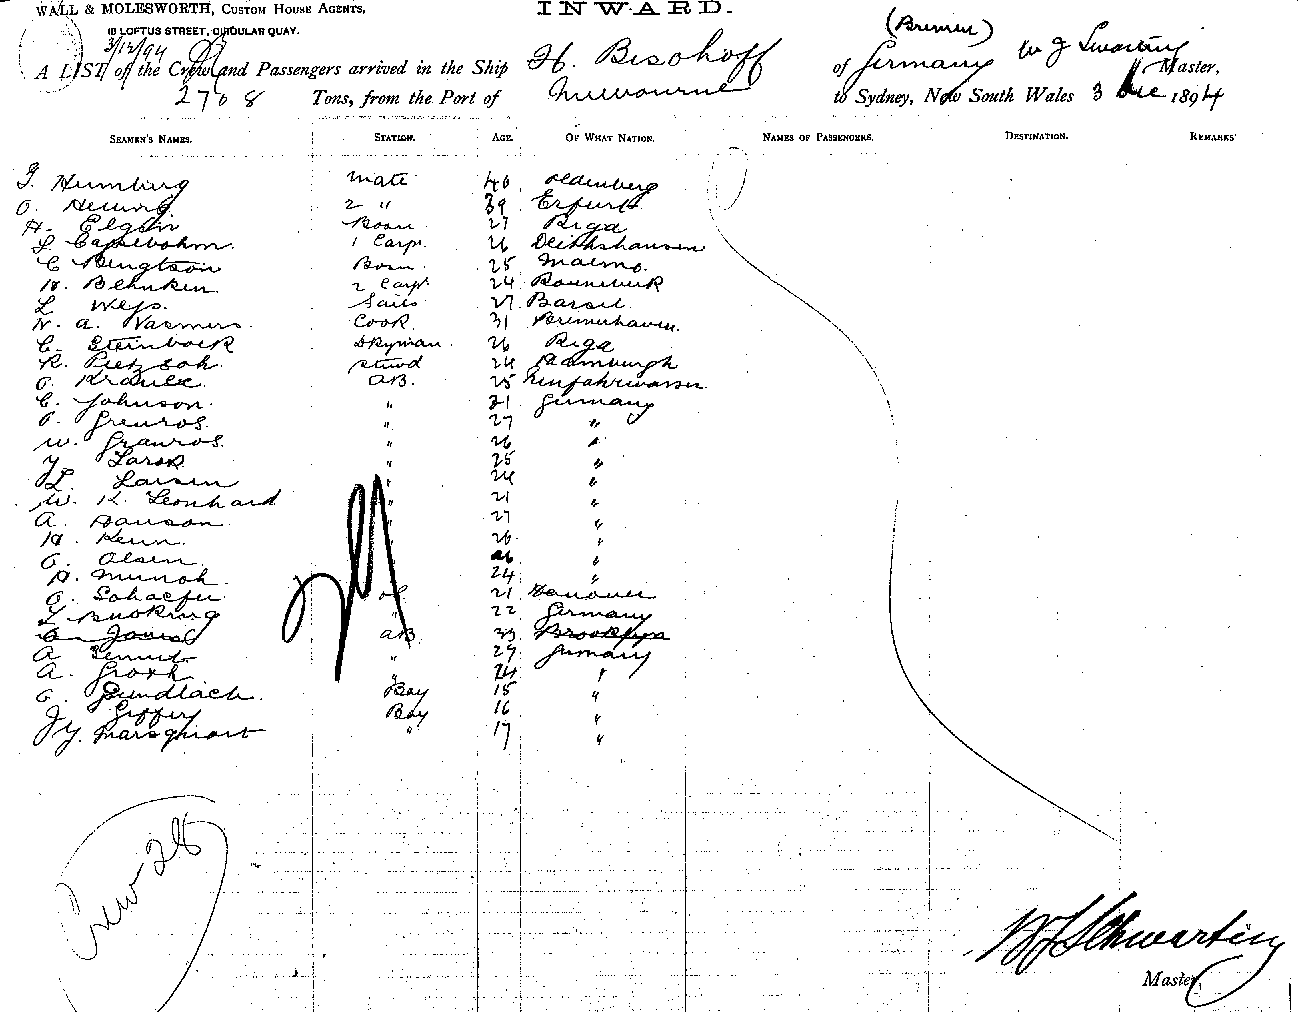 WALL & MOLESWORTH, CUSTOM HOUSE AGENTS,
INWARD.
10 LOFTUS STREET, CIRCULAR QUAY.
3/12/94
(Bremen)
A LIST of the Crew and Passengers arrived in the Ship H. Bischoff of Germany W J Swarting Master,
2708 Tons, from the Port of Melbourne to Sydney, New South Wales 3 Dec 1894
SEAMEN'S NAMES. STATION. AGE. OF WHAT NATION. NAMES OF PASSENGERS. DESTINATION. REMARKS
Mate 40 Oldenberg
O. 2 " 39 Erfurt
H. Elgin Bosn 27 Riga
1 Carp. 26
C Bengtson Bosn. 25 Malmo.
H. Behnken. 2 Carp. 24
L Weys. Sails 27 Barsel
N. A. Vasmers. Cook. 31 Bremerhaven.
C. Steinbock Dkyman. 26 Riga
R. Pietzsch. Stewd 24 Hamburgh
O. Krause. AB. 25 Neufahrwasser
C. Johnson. " 21 Germany
" 27 "
W. " 26 "
" 25 "
L. Larsen " 24 "
W. K. Leonhard " 21 "
A. Hanson " 27 "
H. " 26 "
O. Olsen " 26 "
H. Munch. " 24 "
O. Schaefer OS. 21 Hanover
L. Buoking " 22 Germany
AB. 33 Brooklyn
A " 29 Germany
A. Groth " 24 "
G. Gundlach. Boy 15 "
Boy 16 "
" 17 "
Crew 28
W J Schwarting
Master.